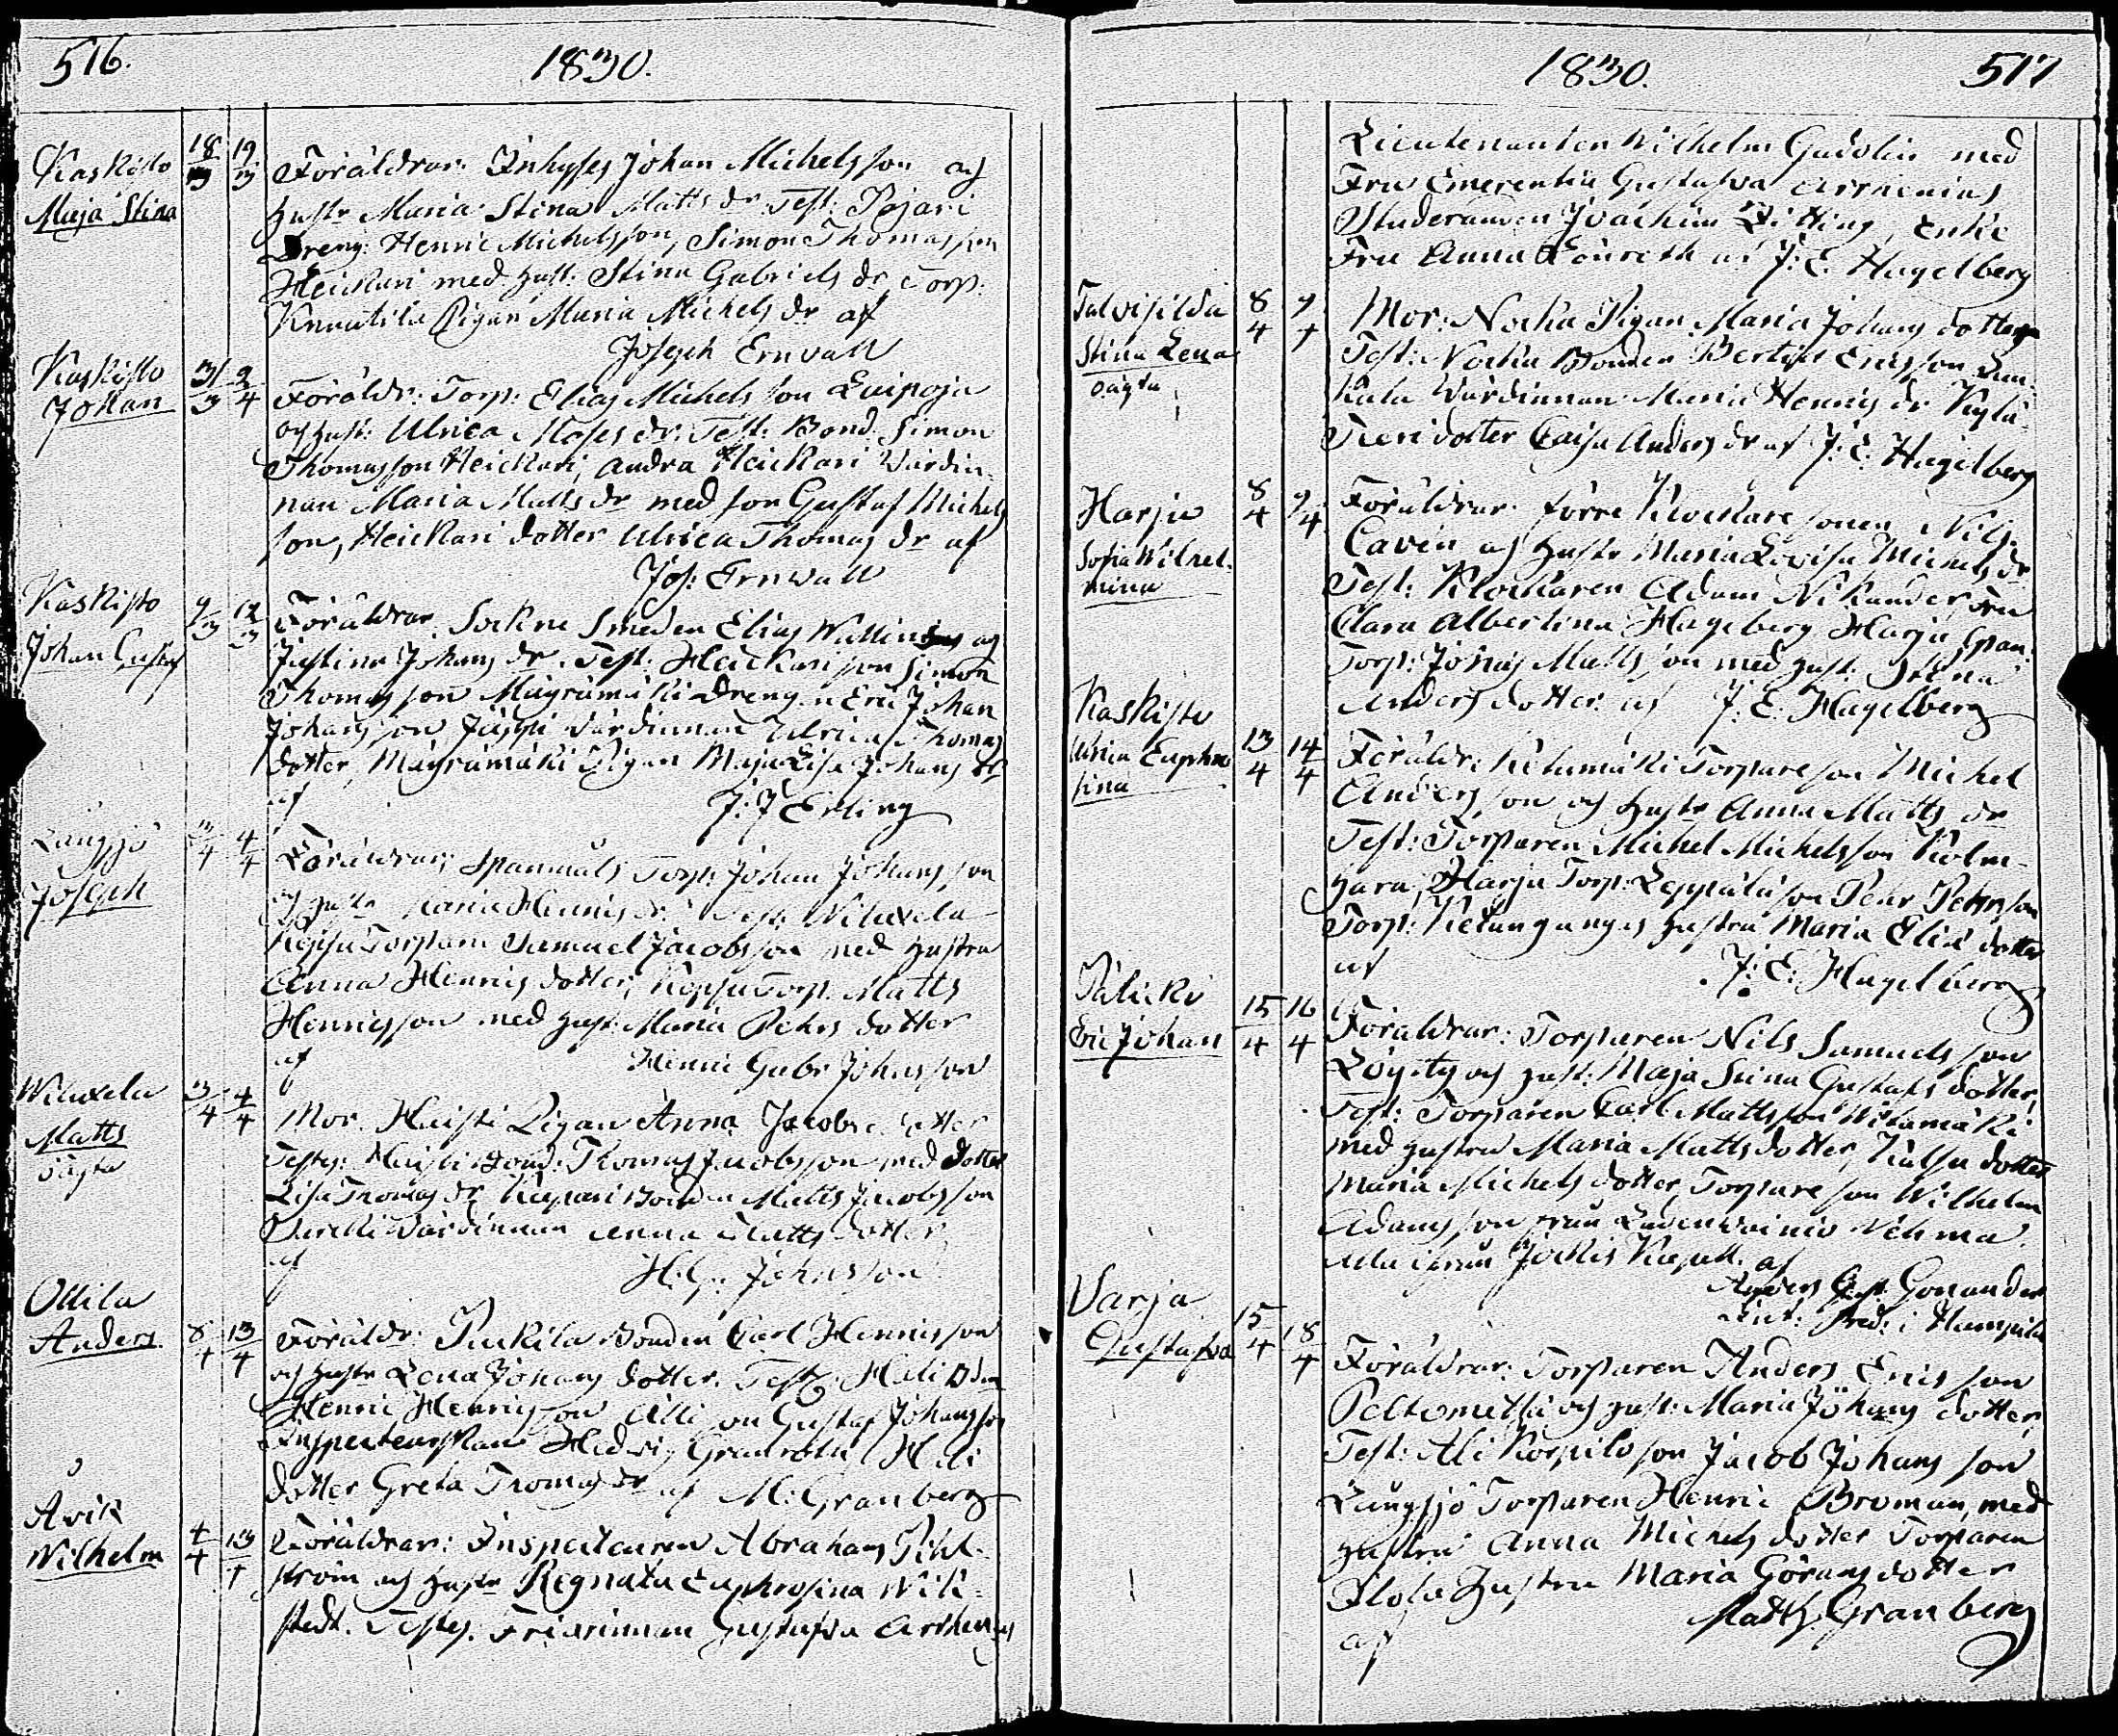 516.
1830.
Kaskisto
Maja Stina
18/3 19/3
Föräldrar: Inhyses Johan Michelsson och
hustr Maria Stina Matts dr. Test: Pajari
Dreng: Henric Michelsson, Simon Thomasson
Heickari med hust: Stina Gabriels dr Torp:
Knuutila Pigan Maria Michels dr af
Joseph Ernvall
Kaskisto
Johan
31/3 2/4
Föräldr: Torp: Elias Michels son Luipoja
och hust: Ulrica Moses dr. Test: Bond: Simon
Thomasson Heickari, andra Heickari Värdin-
nan Maria Matts dr med son Gustaf Michels
son, Heickari dotter Ulrica Thomas dr af
Jos: Ernwall
Kaskisto
Johan Gustaf
9/3 12/3
Föräldrar Sockne Smeden Elias Wallin och
Justina Johans dr. Test: Heickari son Simon
Thomasson Mägrämäki Dreng:n Eric Johan
Johansson Jussi Värdinnan Ulrica Thomas
dotter, Mägrämäki Pigan Maja Lisa Johans dr
af
J: J Erling
Långsjö
Joseph
3/4 4/4
Föräldrar: Spannmåls Torp: Johan Johansson
och hustr Maria Henrics dr. Test:
Torparn Samuel Jacobsson med hustru
Anna Henrics dotter, Torp: Matts
Henricsson med hust: Maria Pehrs dotter
af
Henric Gabr Johnsson
Matts
oägta
3/4 4/4
Mor. Haisti Pigan Anna Jacobs dotter
Testes: Haisti Bond: Thomas Jacobsson med dotter
Lisa Thomas dr Kapari Bonden Matts Jacobsson
Värdinnan Anna Matts dotter
af
H: G: Johnsson
Ollila
Anders
8/4 13/4
Föräldr: Puckila Bonden Carl Henricsson
och hustr Lena Johans dotter. Test: Heli Bdn
Henric Henricsson Alli son Gustaf Johansson
Inspecteurskan Hedvig Granroth Heli
dotter Greta Thomas dr af M: Granberg
Åvik
Wilhelm
4/4 13/4
Föräldrar: Inspecteuren Abraham Pihl-
ström och hustr Regnata Euphrosina Wik-
stedt. Testes. Friarinnan Gustafva Arrhenius
1830.
517
Lieutenanten Wilhelm Gadolin med
Fru Emerentia Gustafva Arrhenius
Studeranden Joachim Enke
Fru Anna Lönroth af J: E: Hagelberg
Talvisilda
Stina Lena
oägta
8/4 9/4
Mor: Nocka Pigan Maria Johans dotter
Test: Nocka Bonden Bertil Ericsson
Värdinnan Maria Henrics dr
dotter Caisa Anders dr af J: E: Hagelberg
Harju
Sofia Wilhel-
mina
8/4 9/4
Föräldrar förre Klockare sonen Nils
Caven och hustr Maria Lovisa Michels dr
Test: Klockaren Adam Nikander Fru
Clara Albertina Hageberg Harju Span:
Torp: Johas Mattsson med hust: Stina
Anders dotter af J: E: Hagelberg
Kaskisto
Ulrica Euphro
sina
13/4 14/4
Föräldr: Kitumäki Torpare son Michel
Andersson och hustr Anna Matts dr
Test: Torparen Michel Michelsson Kolm-
hara, Harju Torp: Leppälä son Pehr Pehrsson
Torp: hustru Maria Elia dotter
af
J: E: Hagelberg
Jälicki
Eric Johan
15/4 16/4
Föräldrar: Torparen Nils Samuelsson
Löysty och hust: Maja Stina Gustafs dotter,
Test: Torparen Carl Mattsson
med hustru Maria Matts dotter, dotter
Maria Michels dotter Torpare son Wilhelm
Adamsson från
ifrån Jockis Kapell. af
Anders Gust: Gonander
Pred: i Humpila
Varja
Gustafva
15/4 18/4
Föräldrar: Torparen Anders Ericsson
Peltomettsä och hust: Maria Johans dotter,
Test: Ali Korpilo son Jacob Johans son
Långsjö Torparen Henric Broman, med
hustru Anna Michels dotter Torparen
Hustru Maria Görans dotter
af
Matth: Granberg